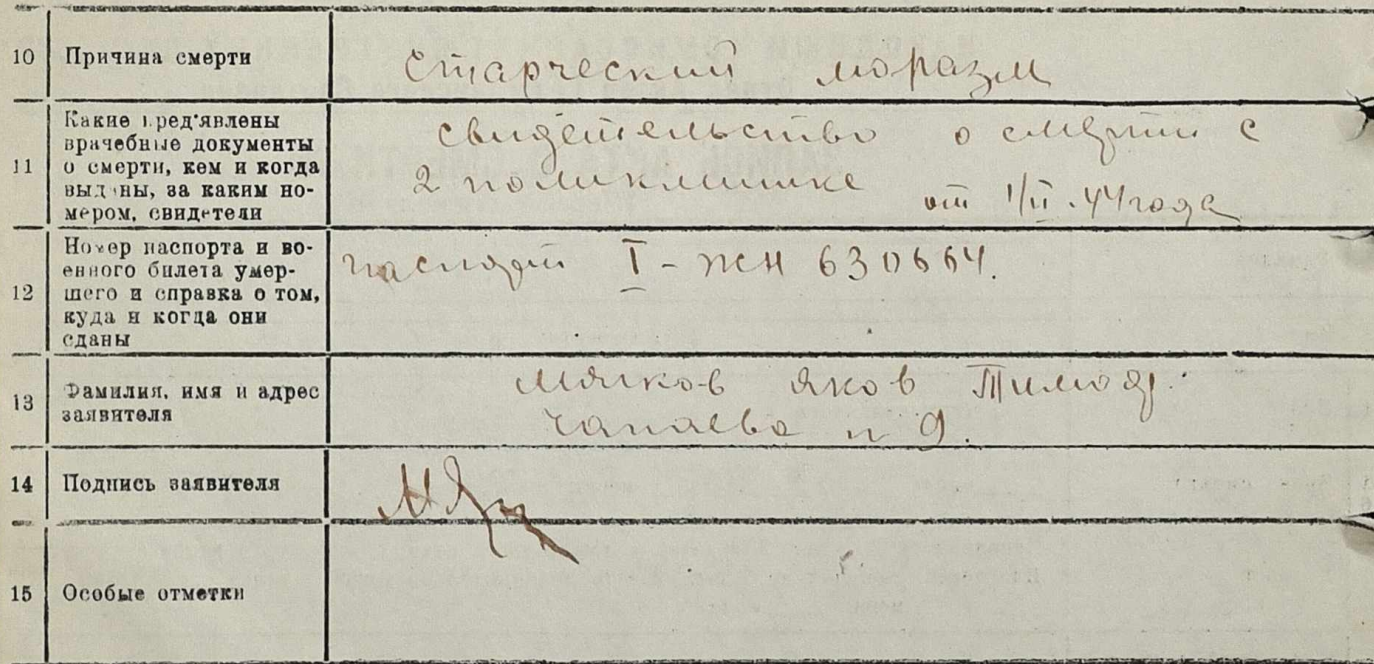 10 Причина смерти
Старческий моразм
11 Какие пред'явлены
врачебные документы
о смерти, кем и когда
выданы, за каким но-
мером, свидетели
свидетельство о смерти с
2 поликлинике
от 1/II-44 года
12 Номер паспорта и во-
енного билета умер-
шего и справка о том,
куда и когда они
сданы
паспорт I-ЖН 630664.
13 Фамилия, имя и адрес
заявителя
Мягков Яков Тимоф.
Чапаева № 9.
14 Подпись заявителя
15 Особые отметки